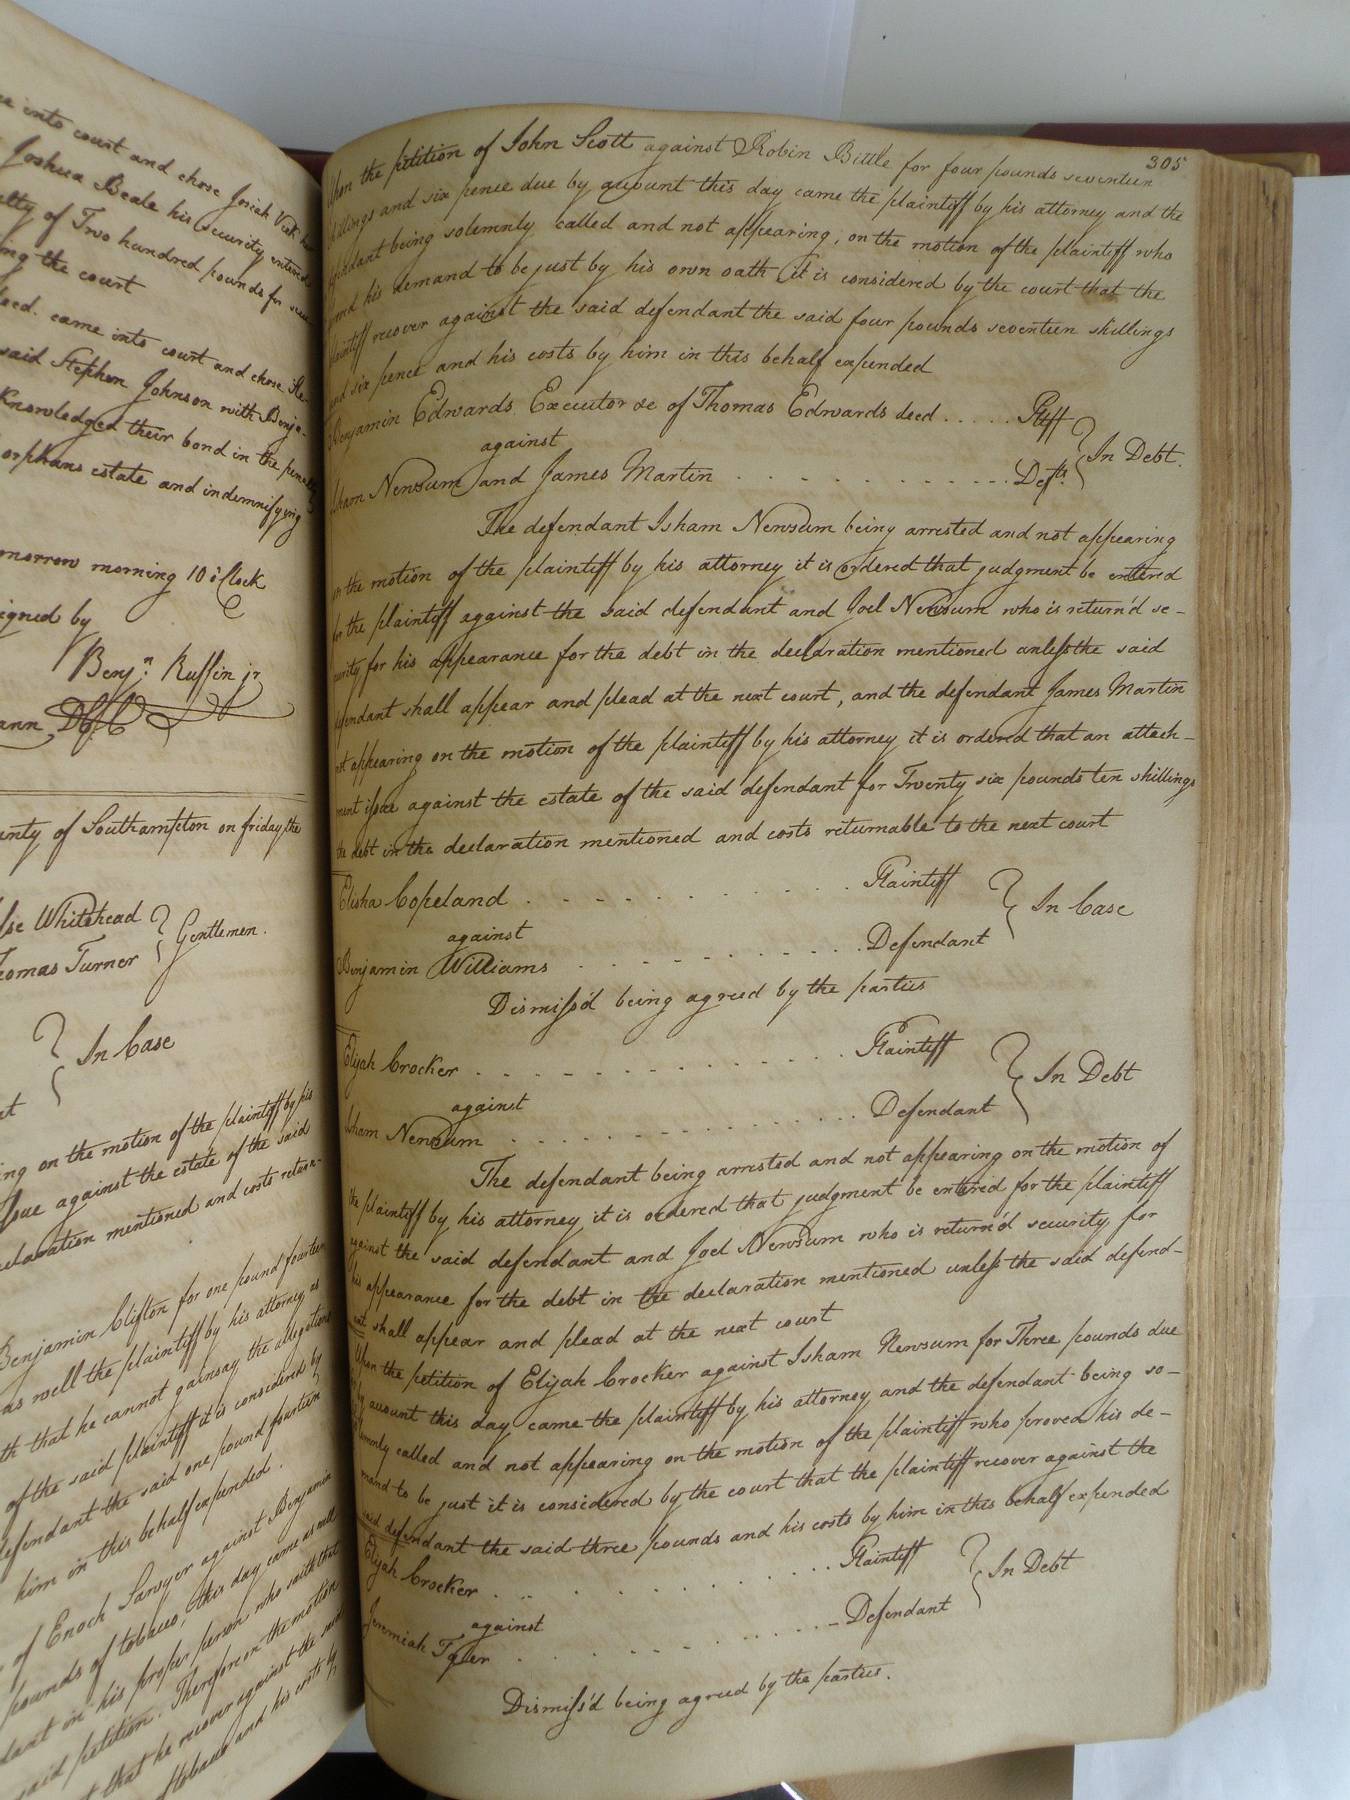 into court and chose Josiah Vick
Joshua Beale his security entered
of Two hundred pounds for
the court
decd. came into court and chose Ste-
said Stephen Johnson with Benja-
knowledged their bond in the penalty
orphans estate and indemnifying
morrow morning 10 oClock
signed by
Benjn. Ruffin jr
unty of Southampton on friday the
Whitehead
Thomas Turner } Gentlemen.
} In Case
on the motion of the plaintiff by his
issue against the estate of the said
declaration mentioned and costs return-
Benjamin Clifton for one pound fourteen
as well the plaintiff by his attorney as
that he cannot gainsay the allegations
of the said plaintiff it is considered by
defendant the said one pound fourteen
him in this behalf expended.
of Enoch Sawyer against Benjamin
pounds of tobacco, this day came as well
in his proper person who saith that
said petition. Therefore on the motion
that he recover against the said
tobacco and his costs by
305
Upon the petition of John Scott against Robin Bittle for four pounds seventeen
shillings and six pence due by account this day came the plaintiff by his attorney and the
defendant being solemnly called and not appearing, on the motion of the plaintiff who
proved his demand to be just by his own oath it is considered by the court that the
plaintiff recover against the said defendant the said four pounds seventeen shillings
and six pence and his costs by him in this behalf expended
Benjamin Edwards Executor &c of Thomas Edwards decd ..... Pltff
against } In Debt.
Isham Newsum and James Martin ............ Defts.
The defendant Isham Newsum being arrested and not appearing
on the motion of the plaintiff by his attorney it is ordered that judgment be entered
for the plaintiff against the said defendant and Joel Newsum who is return'd se-
curity for his appearance for the debt in the declaration mentioned unless the said
defendant shall appear and plead at the next court, and the defendant James Martin
not appearing on the motion of the plaintiff by his attorney it is ordered that an attach-
ment issue against the estate of the said defendant for Twenty six pounds ten shillings
the debt in the declaration mentioned and costs returnable to the next court
Elisha Copeland .......... Plaintiff
against } In Case
Benjamin Williams .......... Defendant
Dismiss'd being agreed by the parties
Elijah Crocker ............ Plaintiff
against } In Debt
Isham Newsum ............ Defendant
The defendant being arrested and not appearing on the motion of
the plaintiff by his attorney it is ordered that judgment be entered for the plaintiff
against the said defendant and Joel Newsum who is return'd security for
his appearance for the debt in the declaration mentioned unless the said defend-
ant shall appear and plead at the next court
Upon the petition of Elijah Crocker against Isham Newsum for Three pounds due
by account this day came the plaintiff by his attorney and the defendant being so-
lemnly called and not appearing on the motion of the plaintiff who proved his de-
mand to be just it is considered by the court that the plaintiff recover against the
said defendant the said three pounds and his costs by him in this behalf expended
Elijah Crocker .......... Plaintiff
against } In Debt
Jeremiah Tyler .......... Defendant
Dismiss'd being agreed by the parties.